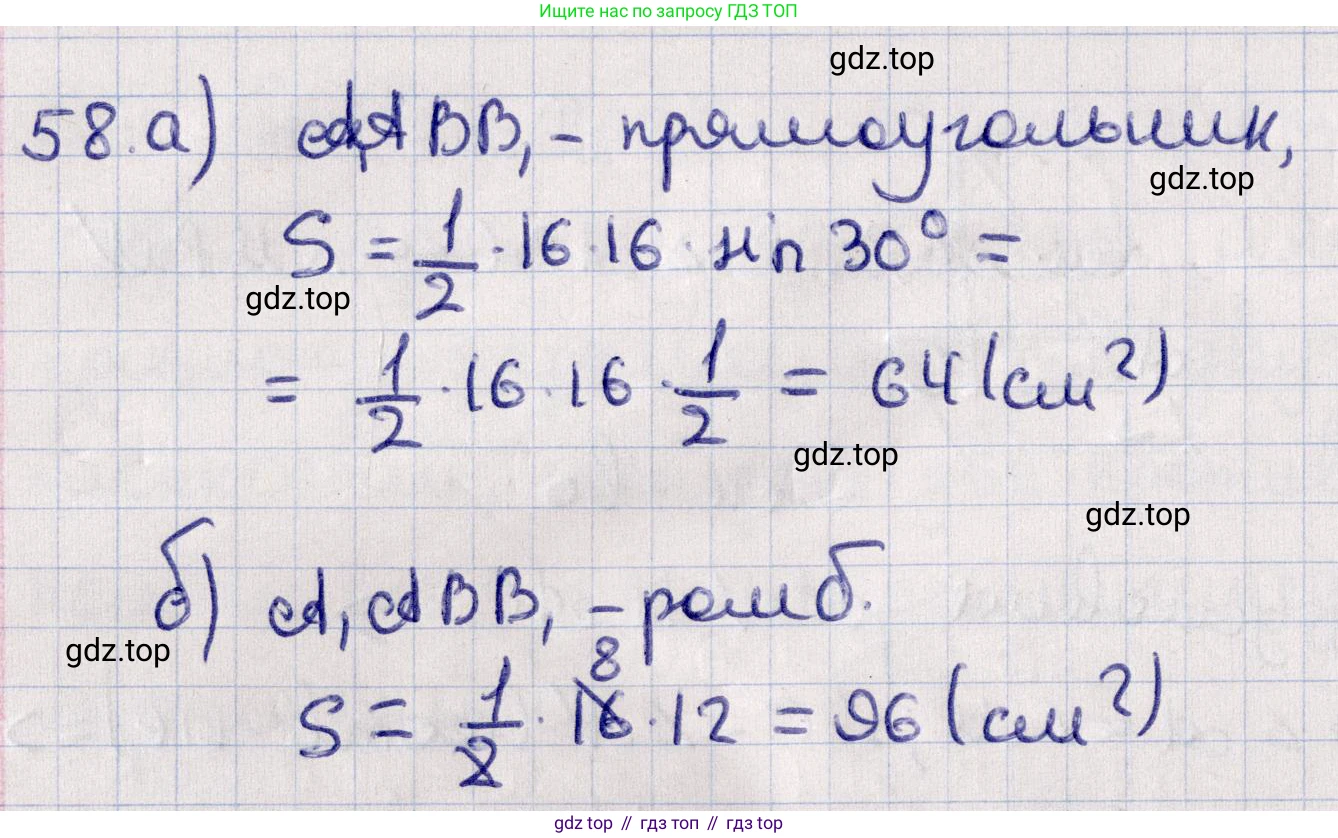 Ищите нас по запросу ГДЗ ТОП
gdz.top
58. а) A₁ABB₁ – прямоугольник,
gdz.top
S = 1/2 · 16 · 16 · sin 30° =
gdz.top
= 1/2 · 16 · 16 · 1/2 = 64 (см²)
gdz.top
gdz.top
б) A₁ABB₁ – ромб.
gdz.top
8
S = 1/2 · 16 · 12 = 96 (см²)
gdz top // гдз топ // гдз top